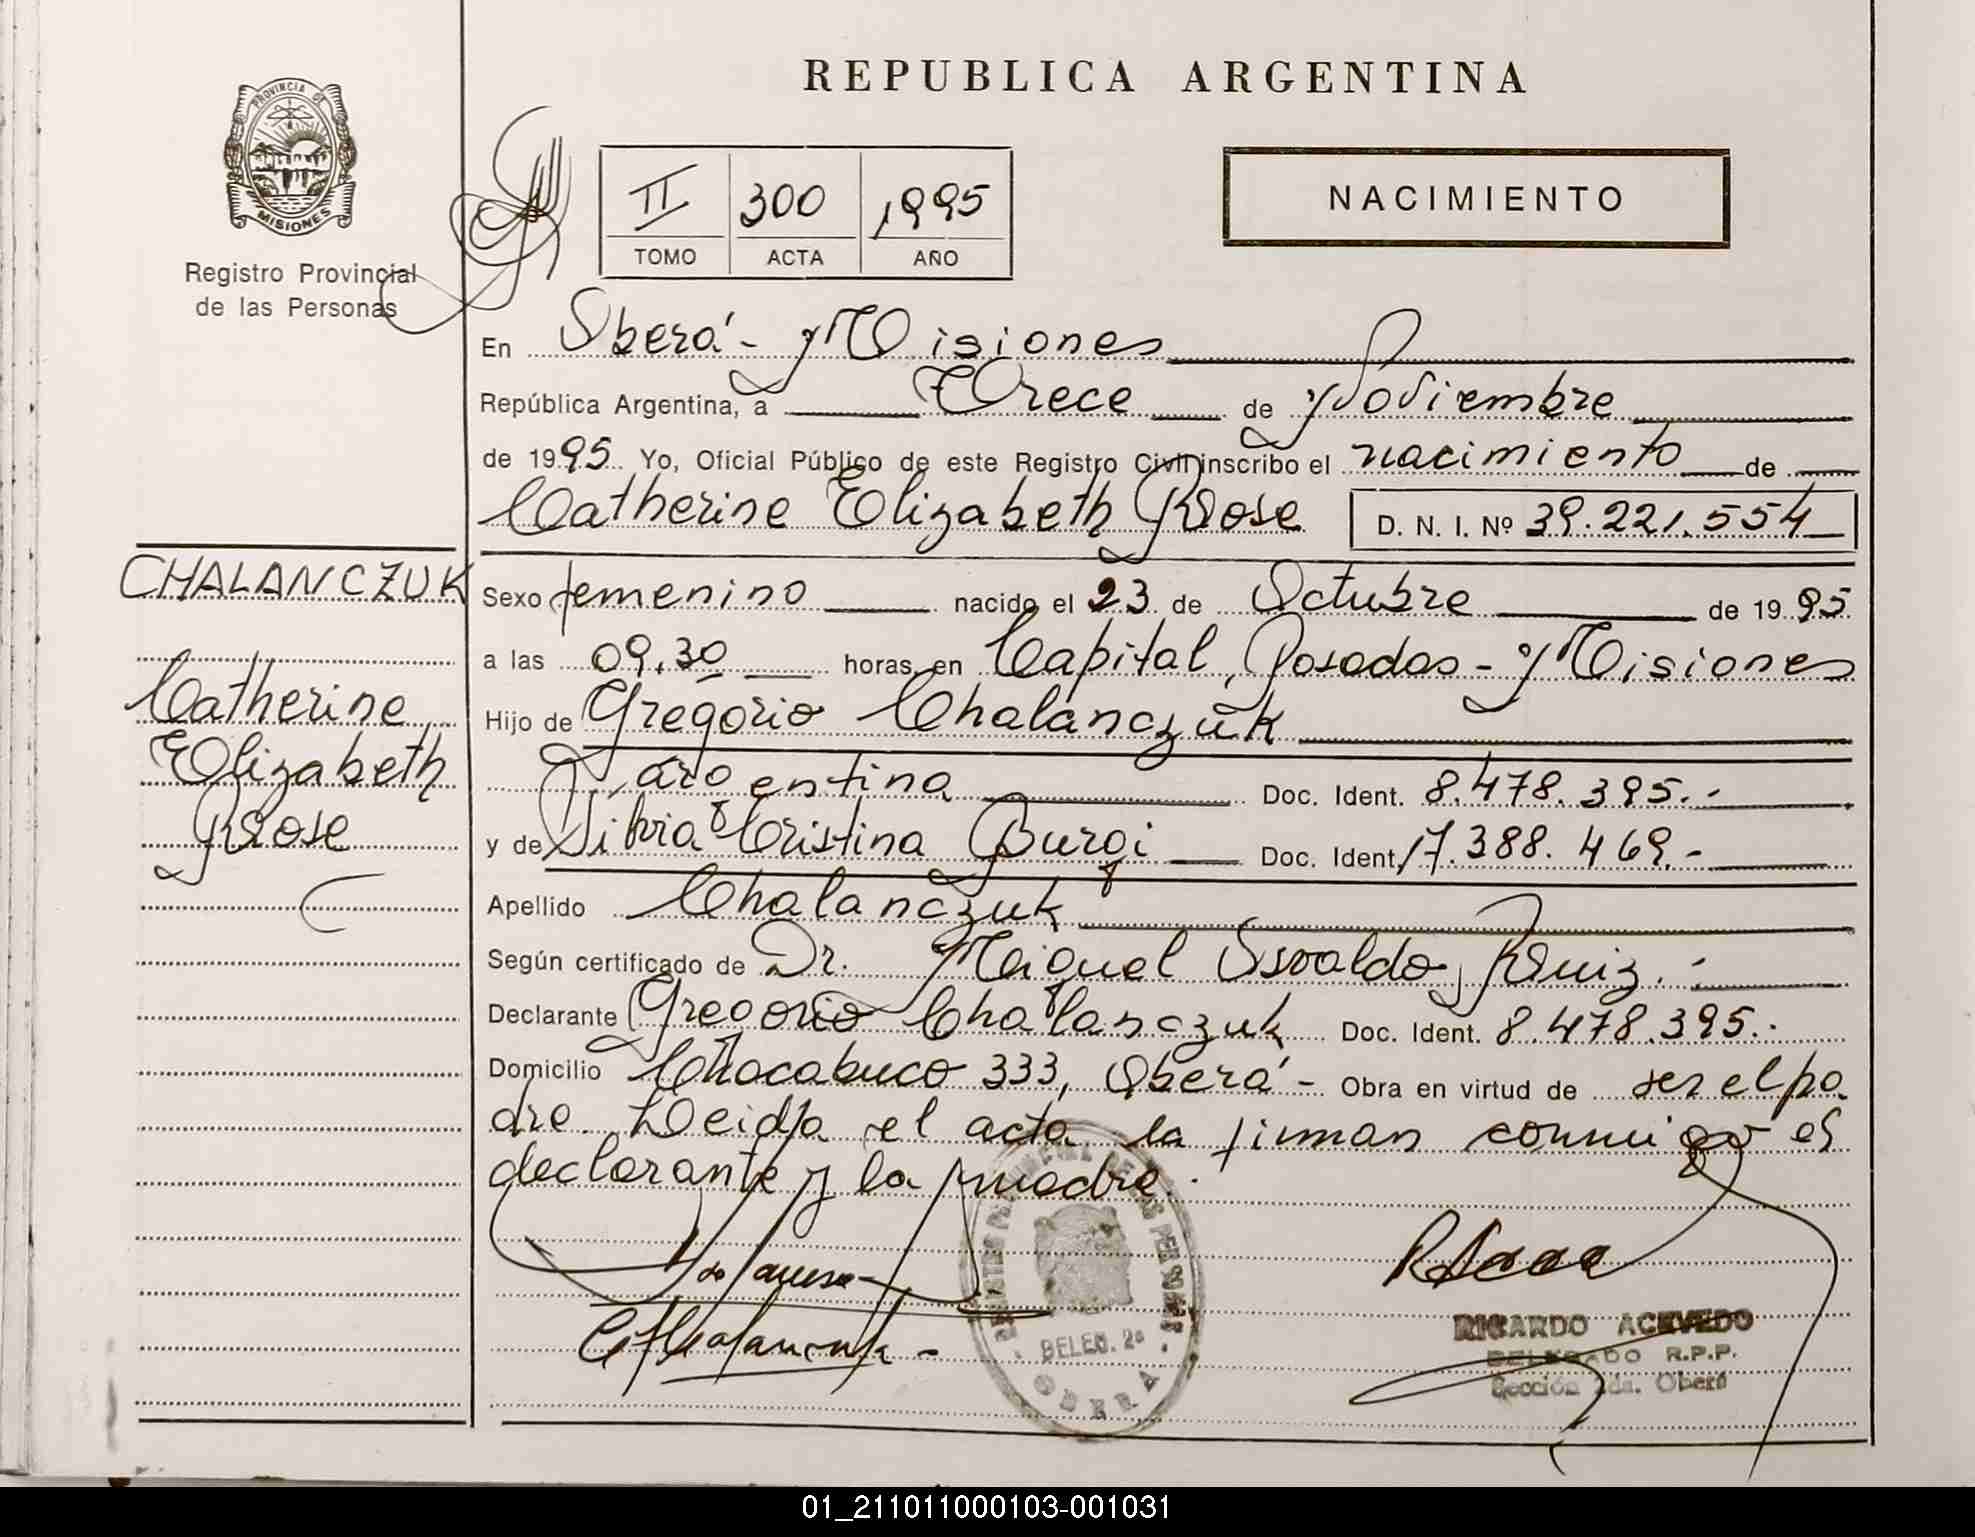 REPUBLICA ARGENTINA
PROVINCIA DE
MISIONES
Registro Provincial
de las Personas
II 300 1995
TOMO ACTA AÑO
NACIMIENTO
En Oberá - Misiones
República Argentina, a Trece de Noviembre
de 1995 Yo, Oficial Público de este Registro Civil inscribo el nacimiento de
Catherine Elizabeth Rose D. N. I. Nº 39.221.554
CHALANCZUK
Catherine
Elizabeth
Rose
Sexo femenino nacido el 23 de Octubre de 19 95
a las 09.30 horas, en Capital, Posadas - Misiones
Hijo de Gregorio Chalanczuk
argentina Doc. Ident. 8.478.395.-
y de Silvia Cristina Burgi Doc. Ident. 17.388.469.-
Apellido Chalanczuk
Según certificado de Dr. Miguel Osvaldo Ruiz.-
Declarante Gregorio Chalanczuk Doc. Ident. 8.478.395.-
Domicilio Chacabuco 333, Oberá - Obra en virtud de ser el pa
dre. Leida el acta la firman conmigo el
declarante y la madre.
BELEG. 2ª
OBERA
RICARDO ACEVEDO
DELEGADO R.P.P.
Sección 2da. Oberá
01_211011000103-001031